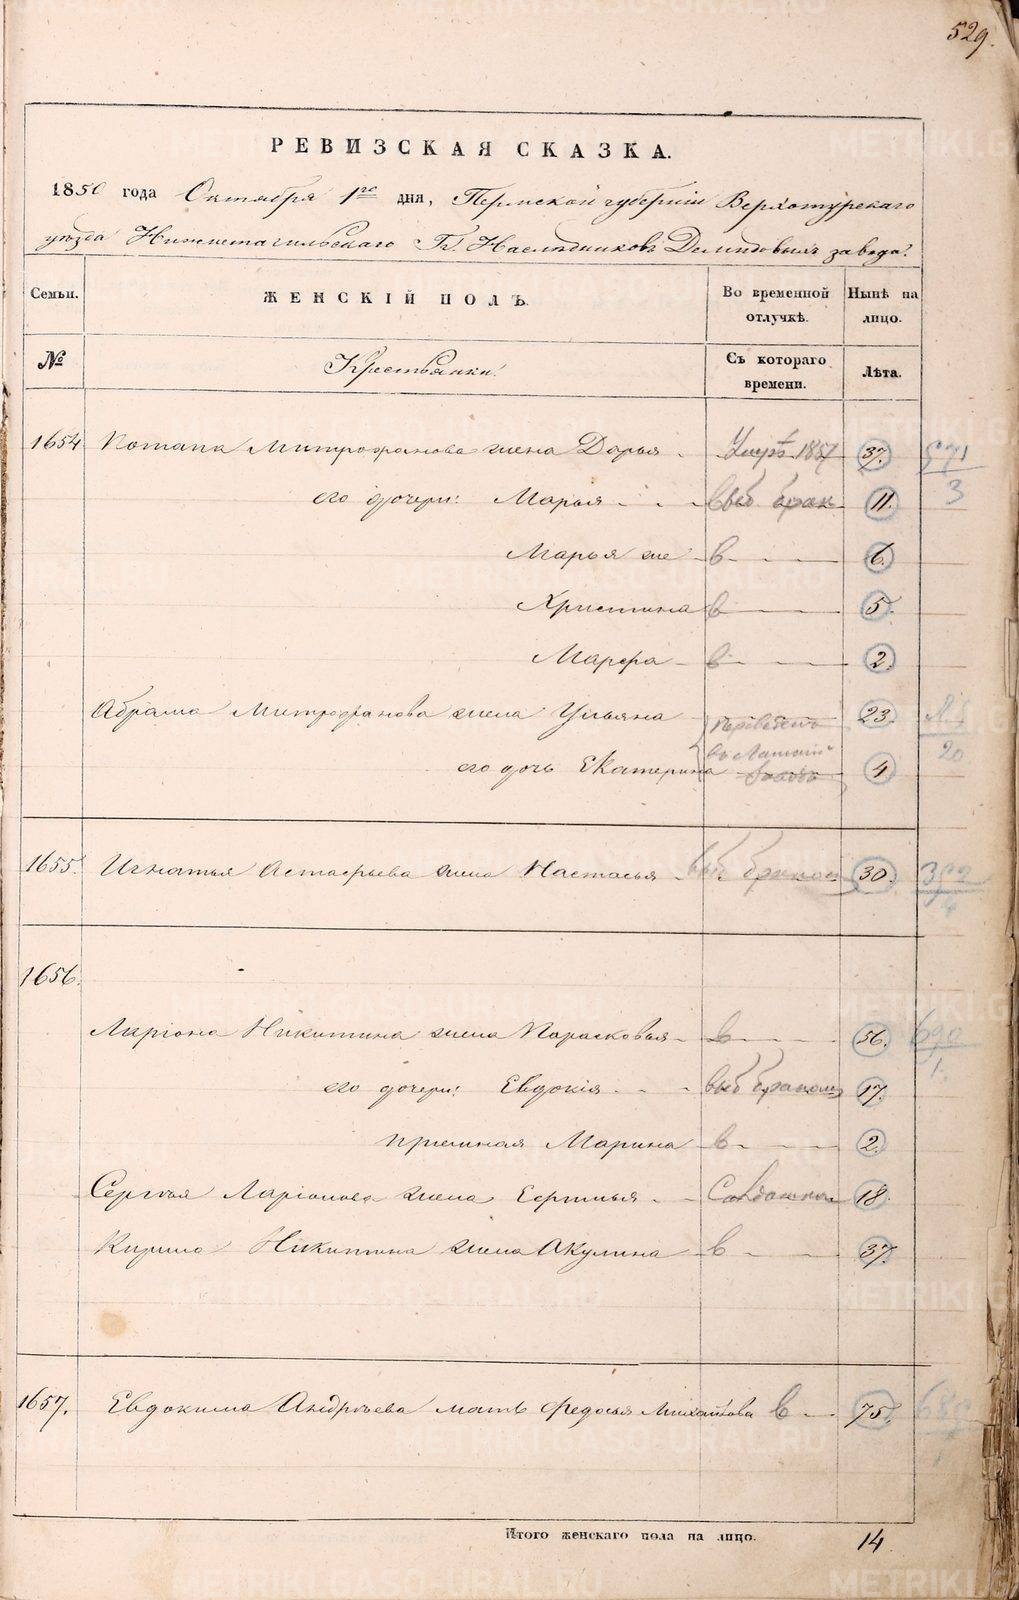 529.
РЕВИЗСКАЯ СКАЗКА.
1850 года Октября 1го дня, Пермской губерніи Верхотурскаго
уѣзда Нижнетагильскаго Гг. Наслѣдниковъ Демидовыхъ завода.
Семьи. ЖЕНСКІЙ ПОЛЪ. Во временной отлучкѣ. Нынѣ на лицо.
№ Крестьянки. Съ котораго времени. Лѣта.
1654 Потапа Митрофанова жена Дарья Умрѣ 1857 37. 571
его дочери: Марья выб брак 11. 3
Марья же в 6.
Христина в 5.
Марфа в 2.
Абрама Митрофанова жена Ульяна переведены 23.
въ 20
его дочь Екатерина 4
1655. Игнатья Астафьева жена Настасья выб браком 30. 392
4
1656.
Ларіона Никитина жена Парасковья в 56. 690
его дочери: Евдокія выб браком 17. 1.
пріемная Марина в 2.
Сергѣя Ларіонова жена Солдатка 18.
Кирила Никитина жена Акулина в 37.
1657. Евдокима Андрѣева мать Федосья Михайлова в 75. 689
Итого женскаго пола на лицо. 14
METRIKI.GASO-URAL.RU